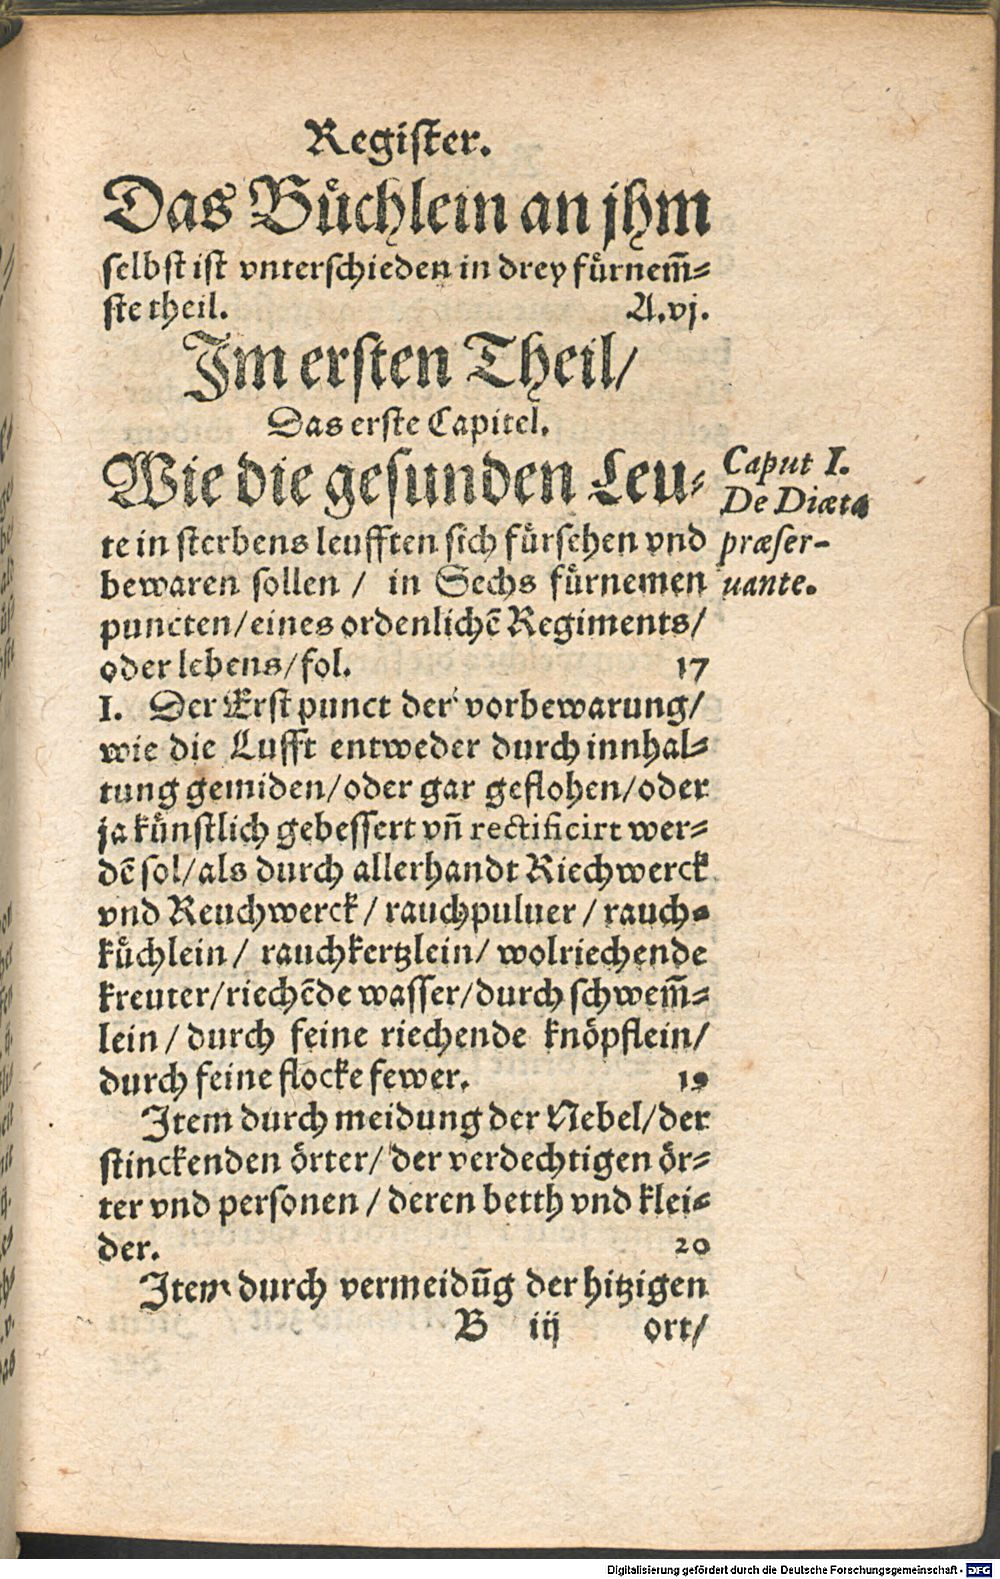 Register.
Das Buͤchlein an jhm
selbst ist vnterschieden in drey fuͤrnem̃⸗
ste theil. A.vj.
Im ersten Theil/
Das erste Capitel.
Wie die gesunden Leu⸗
te in sterbens leufften sich fuͤrsehen vnd
bewaren sollen / in Sechs fuͤrnemen
puncten/eines ordenlichẽ Regiments/
oder lebens/fol. 17
Caput I.
De Diæta
præser-
uante.
I. Der Erst punct der vorbewarung/
wie die Lufft entweder durch innhal⸗
tung gemiden/oder gar geflohen/oder
ja kuͤnstlich gebessert vñ rectificirt wer⸗
dẽ sol/als durch allerhandt Riechwerck
vnd Reuchwerck / rauchpuluer / rauch⸗
kuͤchlein / rauchkertzlein/ wolriechende
kreuter/riechẽde wasser/durch schwem̃⸗
lein / durch feine riechende knoͤpflein/
durch feine flocke fewer. 19
Item durch meidung der Nebel/der
stinckenden oͤrter/ der verdechtigen oͤr⸗
ter vnd personen / deren betth vnd klei⸗
der. 20
Item durch vermeidũg der hitzigen
B iij ort/
Digitalisierung gefördert durch die Deutsche Forschungsgemeinschaft - DFG